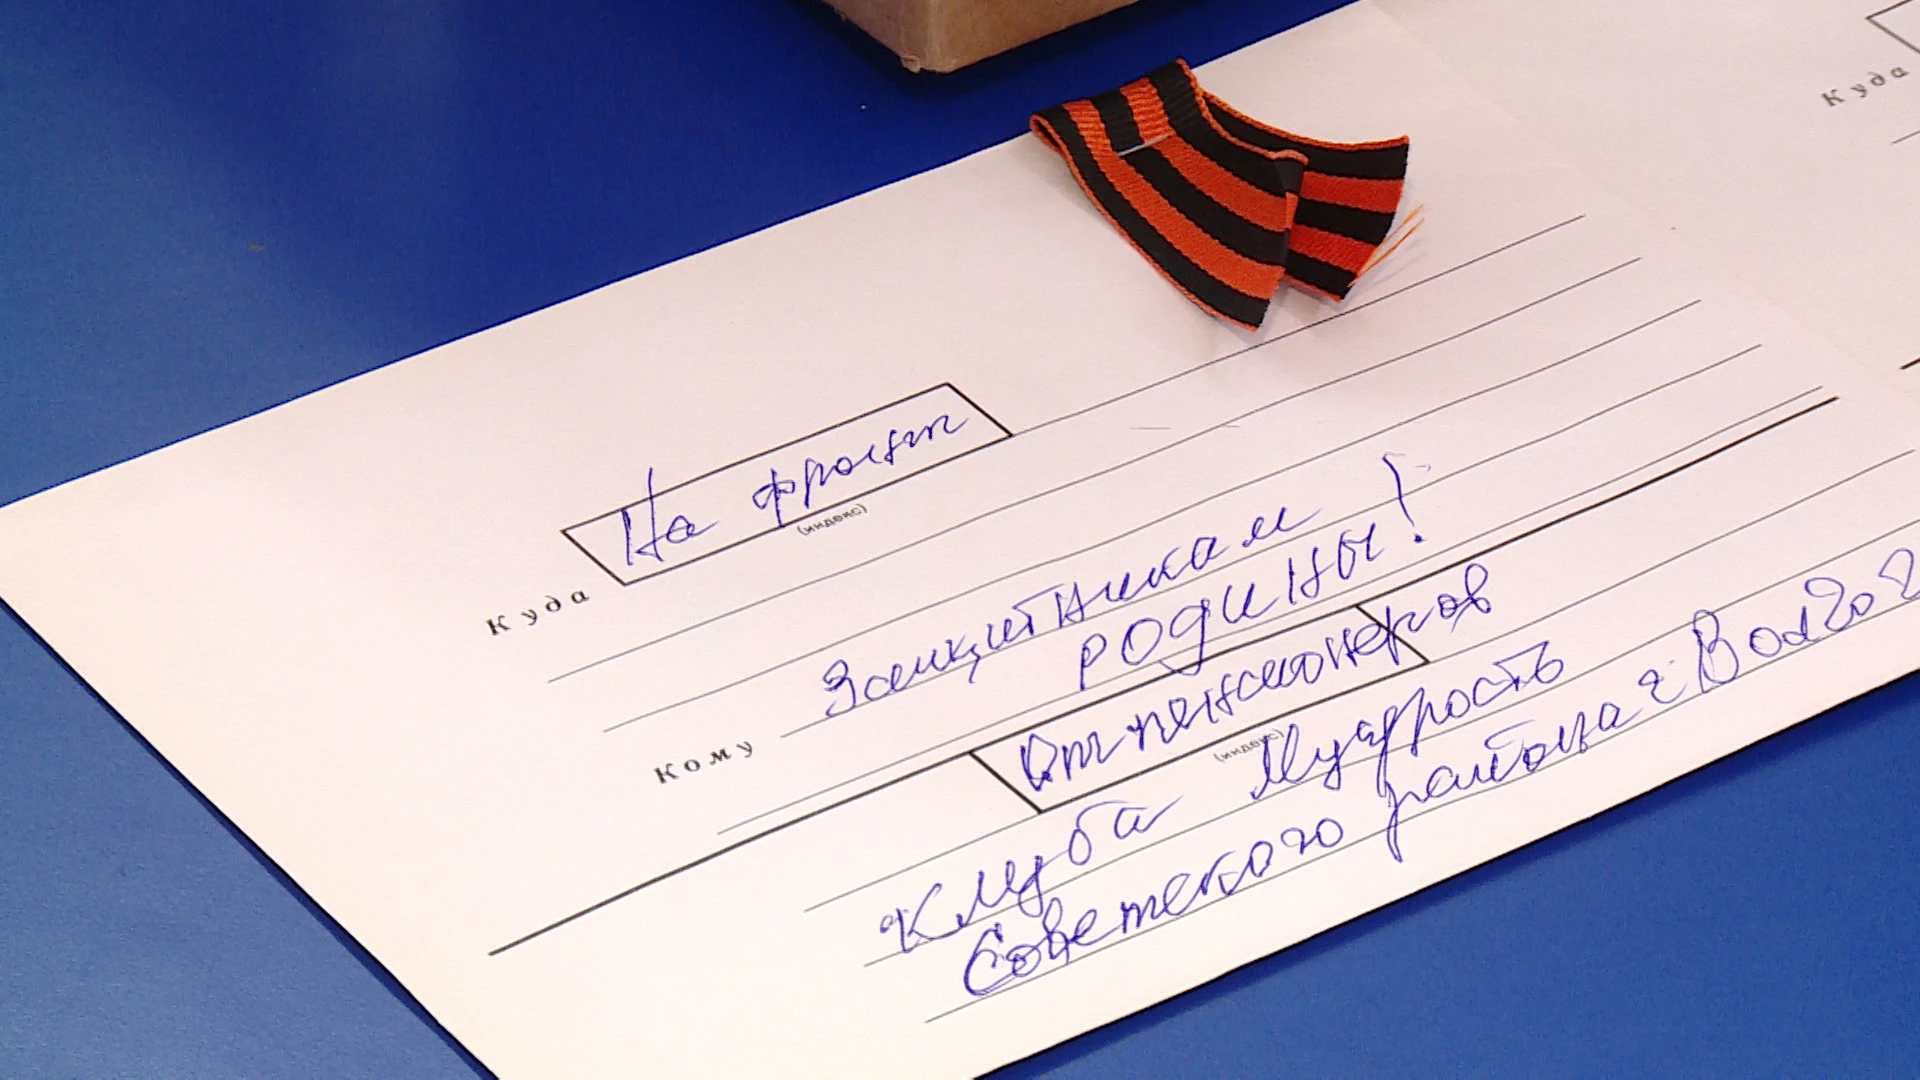 Куда
На фронт
(индекс)
Куда
Защитникам
РОДИНЫ!
Кому
От пенсионеров
(индекс)
Клуба Мудрость
Советского района г. Волгог